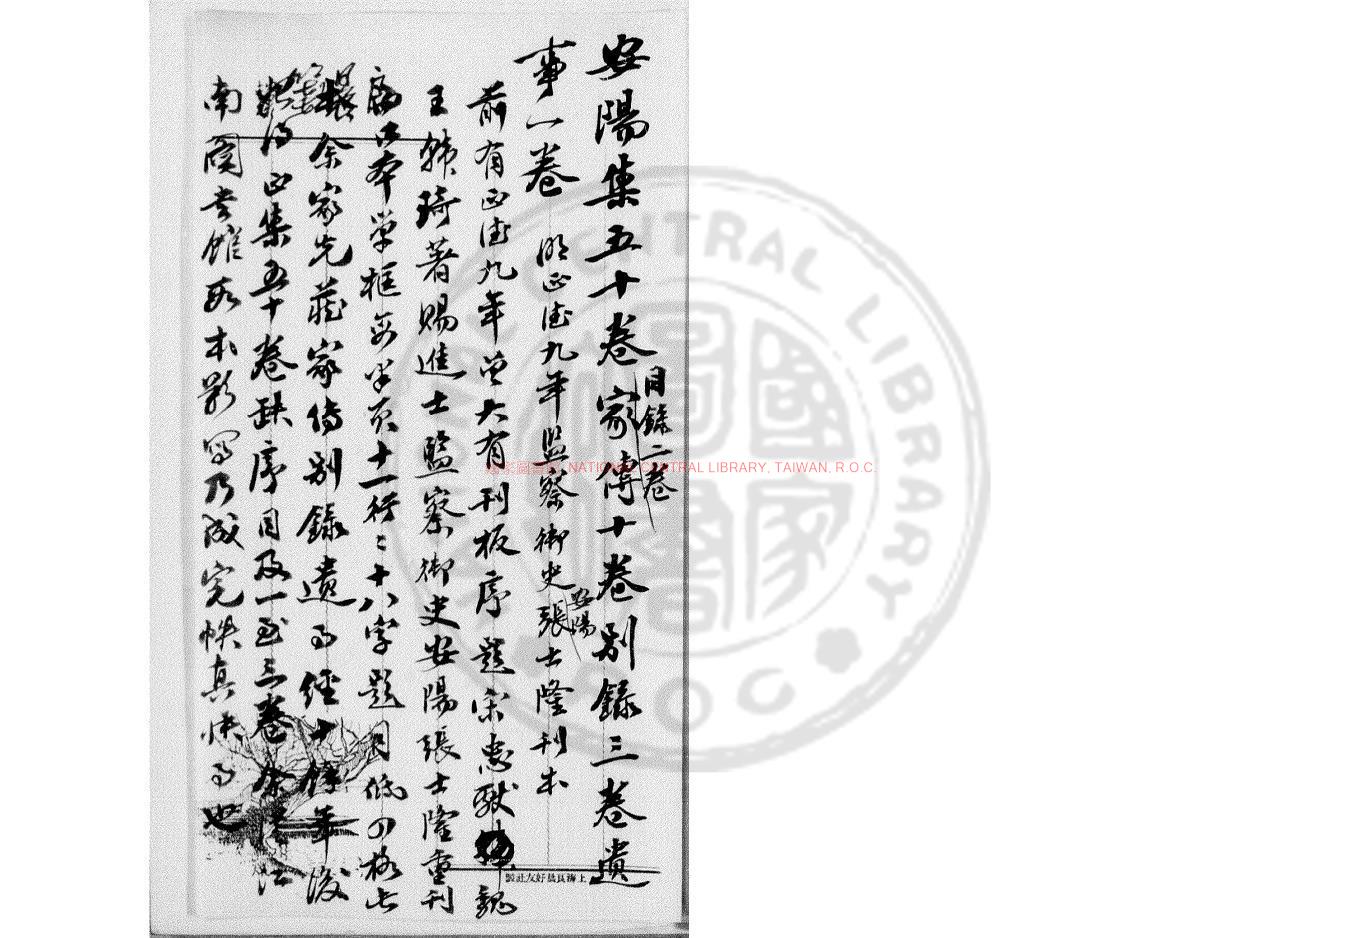 安陽集五十卷家傳十卷別錄三卷遺
目錄二卷
事一卷 明正德九年監察御史張士隆刊本
安陽
前有正德九年曾大有刊板序題宋忠獻魏
王韓琦著賜進士監察御史安陽張士隆重刊
本單框每半頁十一行〻十八字題目低四格
余家先藏家傳別錄遺事經十餘年後
集五十卷缺序目及一至三卷余
南圖書館本影寫乃成完帙真快事也
上海良晨好友社製
國家圖書館, NATIONAL CENTRAL LIBRARY, TAIWAN, R.O.C.
NATIONAL CENTRAL LIBRARY
R.O.C
國家圖書